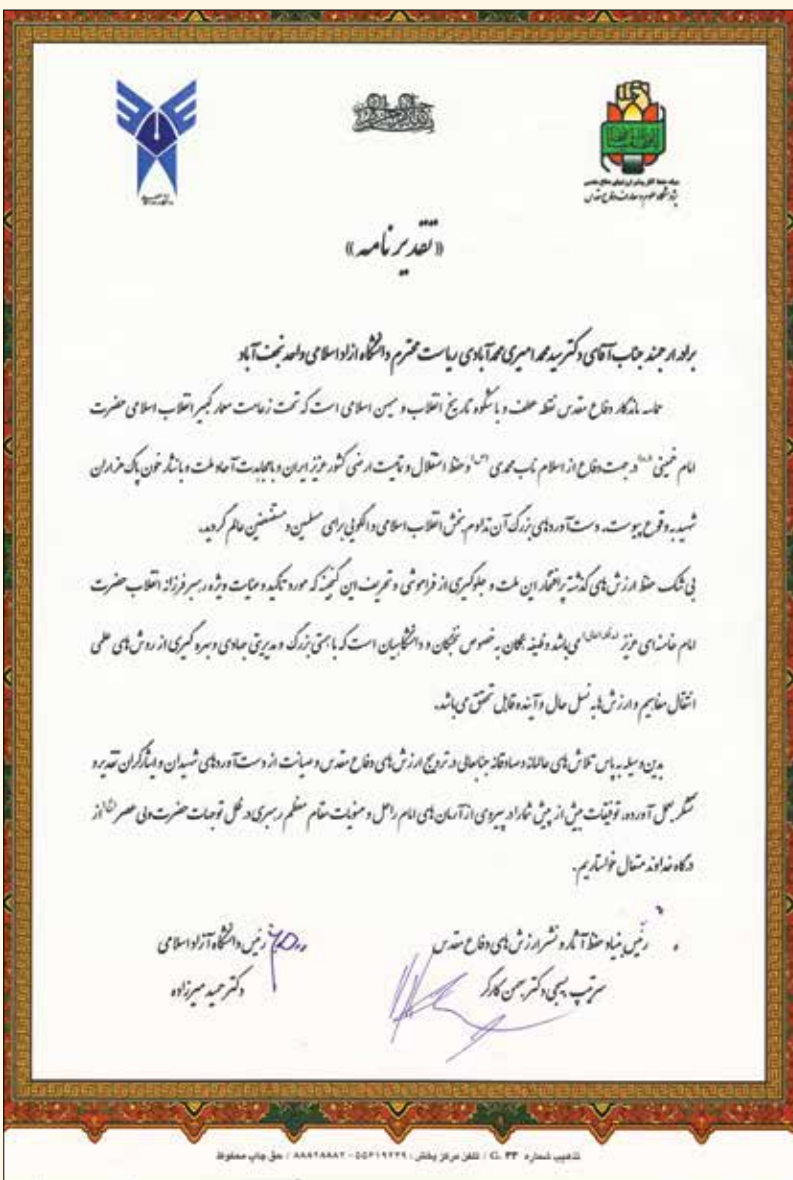 بنیاد حفظ آثار و نشر ارزشهای دفاع مقدس
پژوهشگاه علوم و معارف دفاع مقدس
«تقدیرنامه»
برادر ارجمند جناب آقای دکتر سید محمد امیری محمدآبادی ریاست محترم دانشگاه ازاد اسلامی واحد نجف آباد
حماسه ماندگار دفاع مقدس نقطه عطف و باشکوه تاریخ انقلاب و میهن اسلامی است که تحت زعامت معمار کبیر انقلاب اسلامی حضرت
امام خمینی در جهت دفاع از اسلام ناب محمدی و حفظ استقلال و تمامیت ارضی کشور عزیز ایران و با مجاهدت آحاد ملت و با نثار خون پاک هزاران
شهید به وقوع پیوست، دست آوردهای بزرگ آن تداوم بخش انقلاب اسلامی و الگویی برای مسلمین و مستضعفین عالم گردید.
بی شک حفظ ارزش های گذشته پرافتخار این ملت و جلوگیری از فراموشی و تحریف این گنجینه که مورد تاکید و عنایت ویژه رهبر فرزانه انقلاب حضرت
امام خامنه ای عزیز می باشد وظیفه همگان به خصوص نخبگان و دانشگاهیان است که با همتی بزرگ و مدیریتی جهادی و بهره گیری از روش های علمی
انتقال مفاهیم و ارزش ها به نسل حال و آینده قابل تحقق می باشد.
بدین وسیله به پاس تلاش های عالمانه و صادقانه جنابعالی در ترویج ارزش های دفاع مقدس و صیانت از دست آوردهای شهیدان و ایثارگران تقدیر و
تشکر بعمل آورده، توفیقات بیش از پیش شما را در پیروی از آرمان های امام راحل و منویات مقام معظم رهبری در ظل توجهات حضرت ولی عصر از
درگاه خداوند متعال خواستاریم.
رئیس بنیاد حفظ آثار و نشر ارزش های دفاع مقدس
سرتیپ بسیجی دکتر بهمن کارگر
رئیس دانشگاه آزاد اسلامی
دکتر حمید میرزاده
تذهیب شماره G. ۳۳ / تلفن مرکز پخش : ۵۵۶۱۹۲۲۹ - ۸۸۸۲۸۸۸۲ / حق چاپ محفوظ